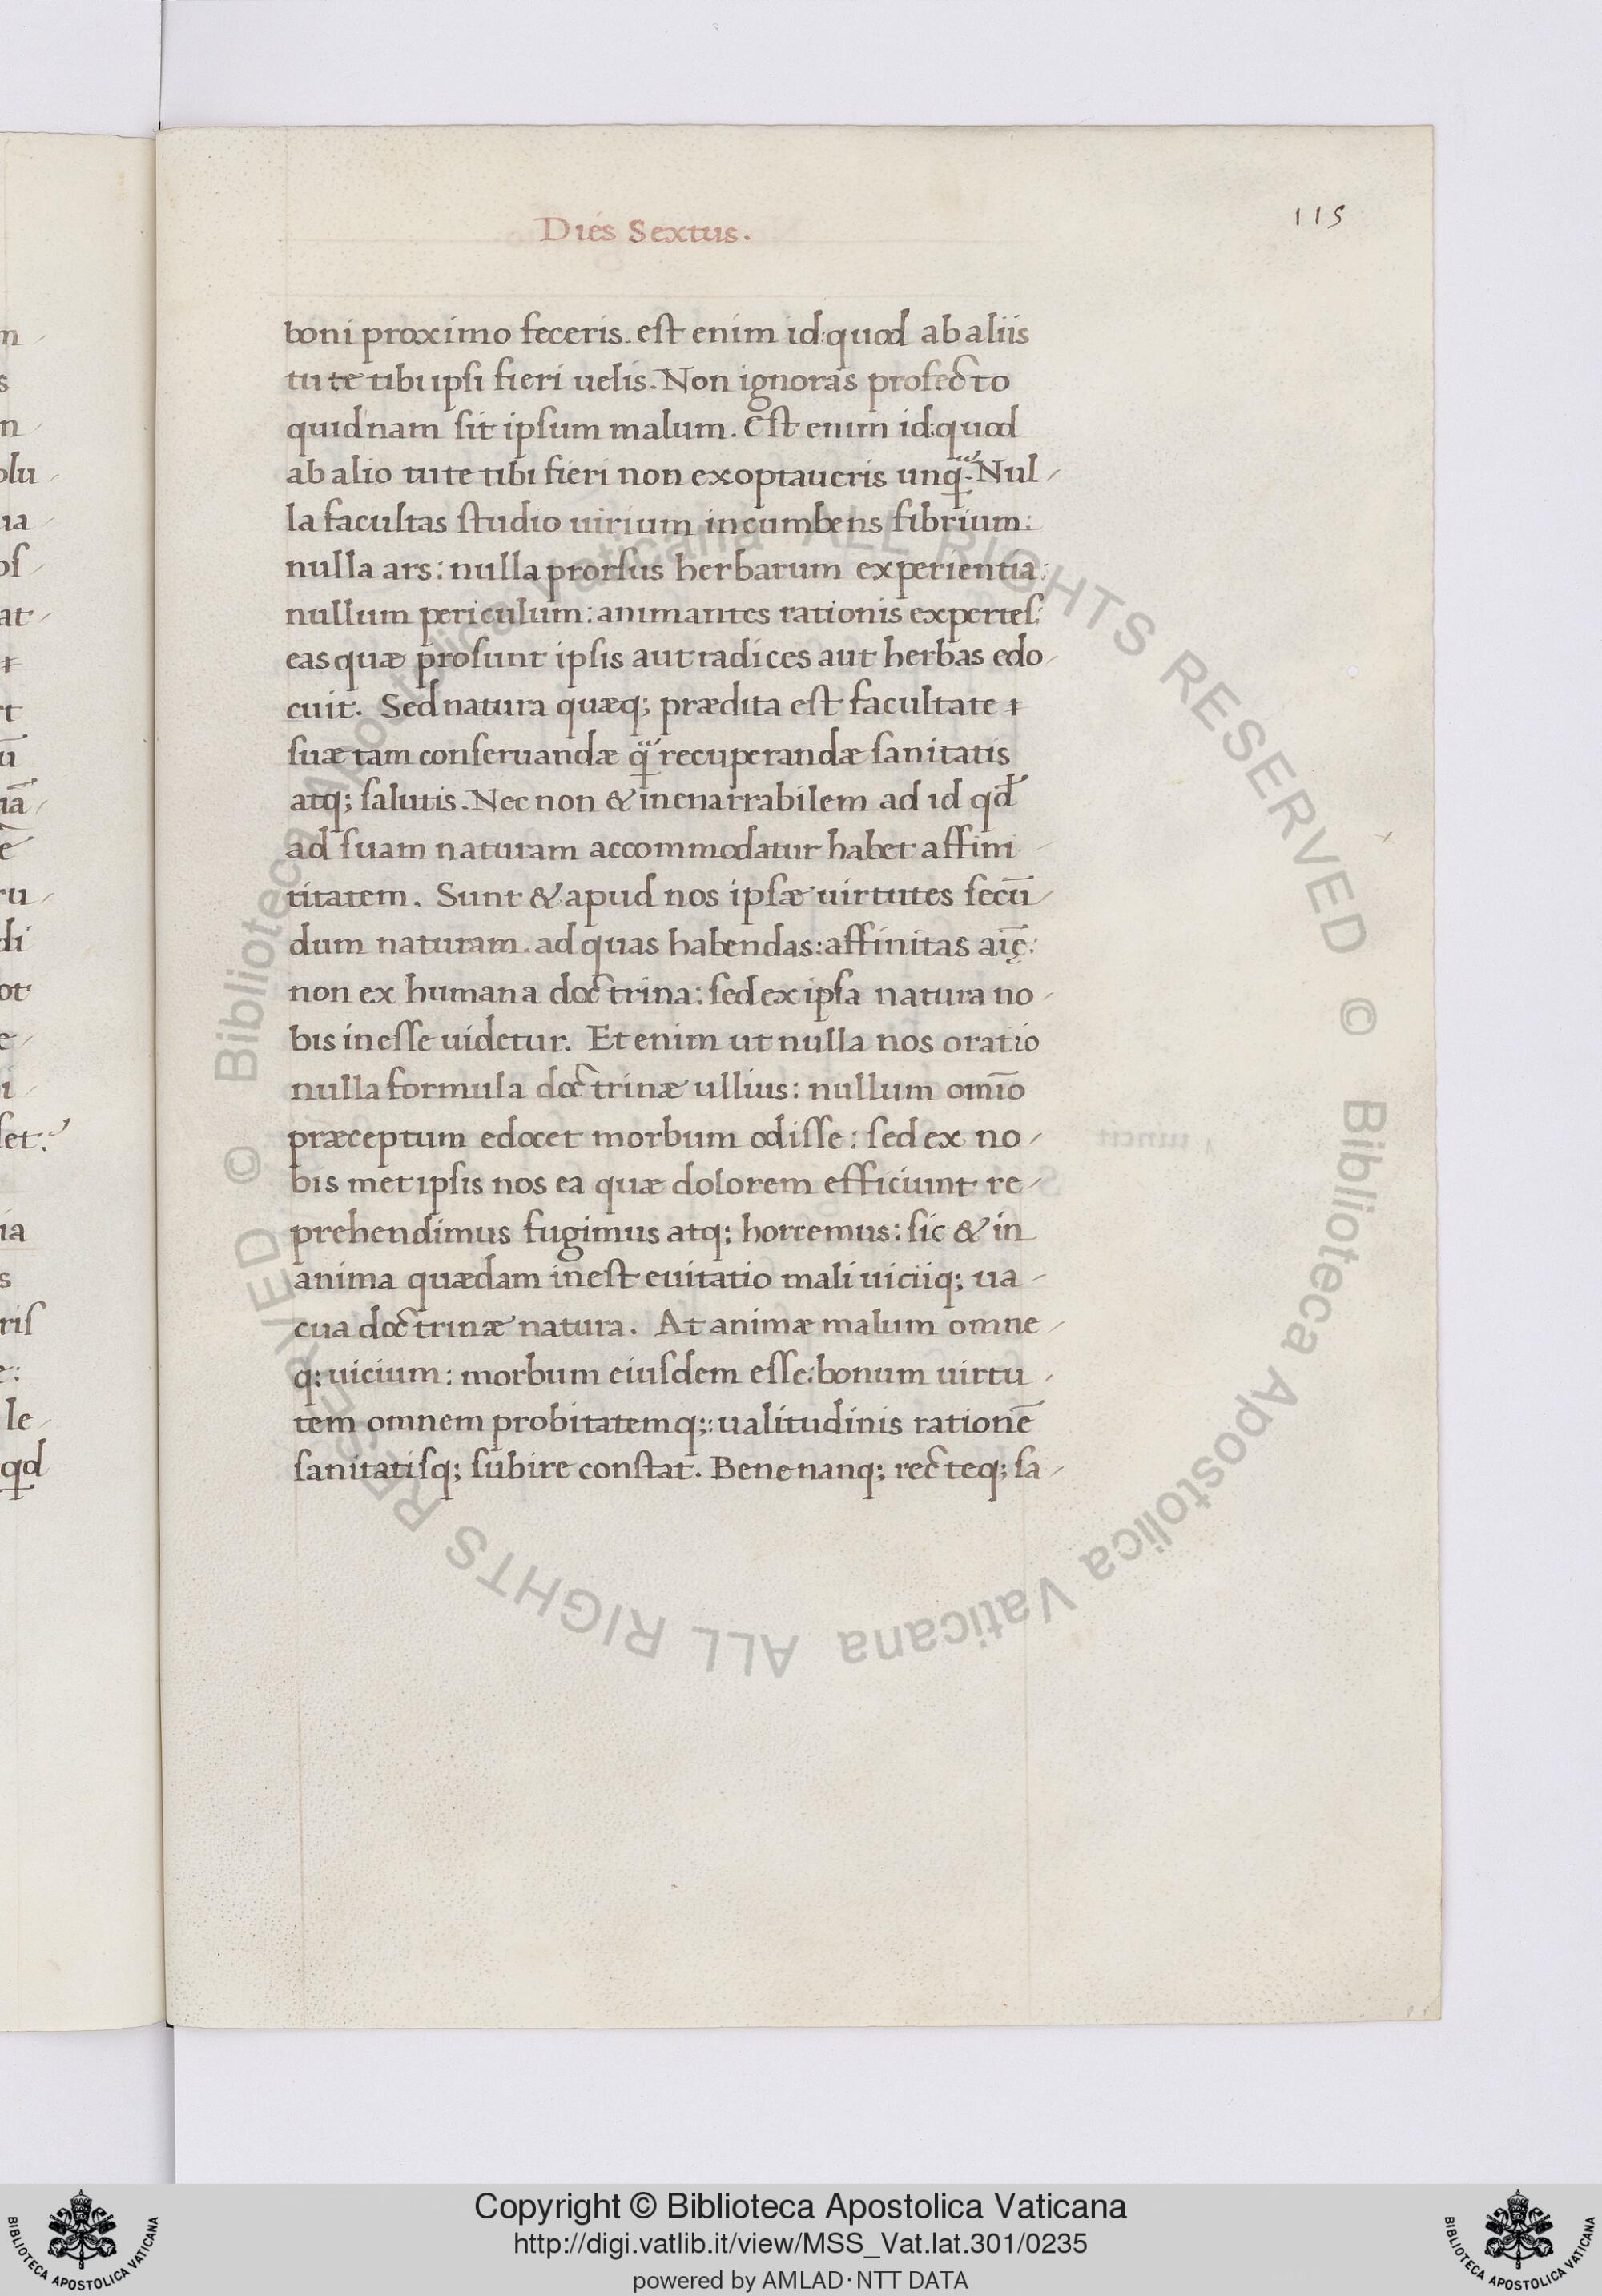 Dies Sextus.
115
boni proximo feceris. est enim id: quod ab aliis
tu te tibi ipsi fieri uelis. Non ignoras profecto
quidnam sit ipsum malum. Est enim id: quod
ab alio tu te tibi fieri non exoptaueris unq̃. Nul-
la facultas studio uirium incumbens fibrium:
nulla ars: nulla prorsus herbarum experientia:
nullum periculum: animantes rationis expertes:
eas quæ prosunt ipsis aut radices aut herbas edo-
cuit. Sed natura quæq; prædita est facultate
suæ tam conseruandæ q̃ recuperandæ sanitatis
atq; salutis. Nec non & inenarrabilem ad id qd̃
ad suam naturam accommodatur habet affini
titatem. Sunt & apud nos ipsæ uirtutes secũ-
dum naturam. ad quas habendas: affinitas aĩę:
non ex humana doctrina: sed ex ipsa natura no-
bis inesse uidetur. Etenim ut nulla nos oratio
nulla formula doctrinæ ullius: nullum om̃io
præceptum edocet morbum odisse: sed ex no-
bis met ipsis nos ea quæ dolorem efficiunt re-
prehendimus fugimus atq; horremus: sic & in
anima quædam inest euitatio mali uiciiq; ua-
cua doctrinæ natura. At animæ malum omne
q: uicium: morbum eiusdem esse: bonum uirtu-
tem omnem probitatemq;: ualitudinis rationẽ
sanitatisq; subire constat. Bene nanq; recteq; sa-
Copyright © Biblioteca Apostolica Vaticana
http://digi.vatlib.it/view/MSS_Vat.lat.301/0235
powered by AMLAD·NTT DATA
BIBLIOTECA APOSTOLICA VATICANA
BIBLIOTECA APOSTOLICA VATICANA
© Biblioteca Apostolica Vaticana ALL RIGHTS RESERVED
© Biblioteca Apostolica Vaticana ALL RIGHTS RESERVED